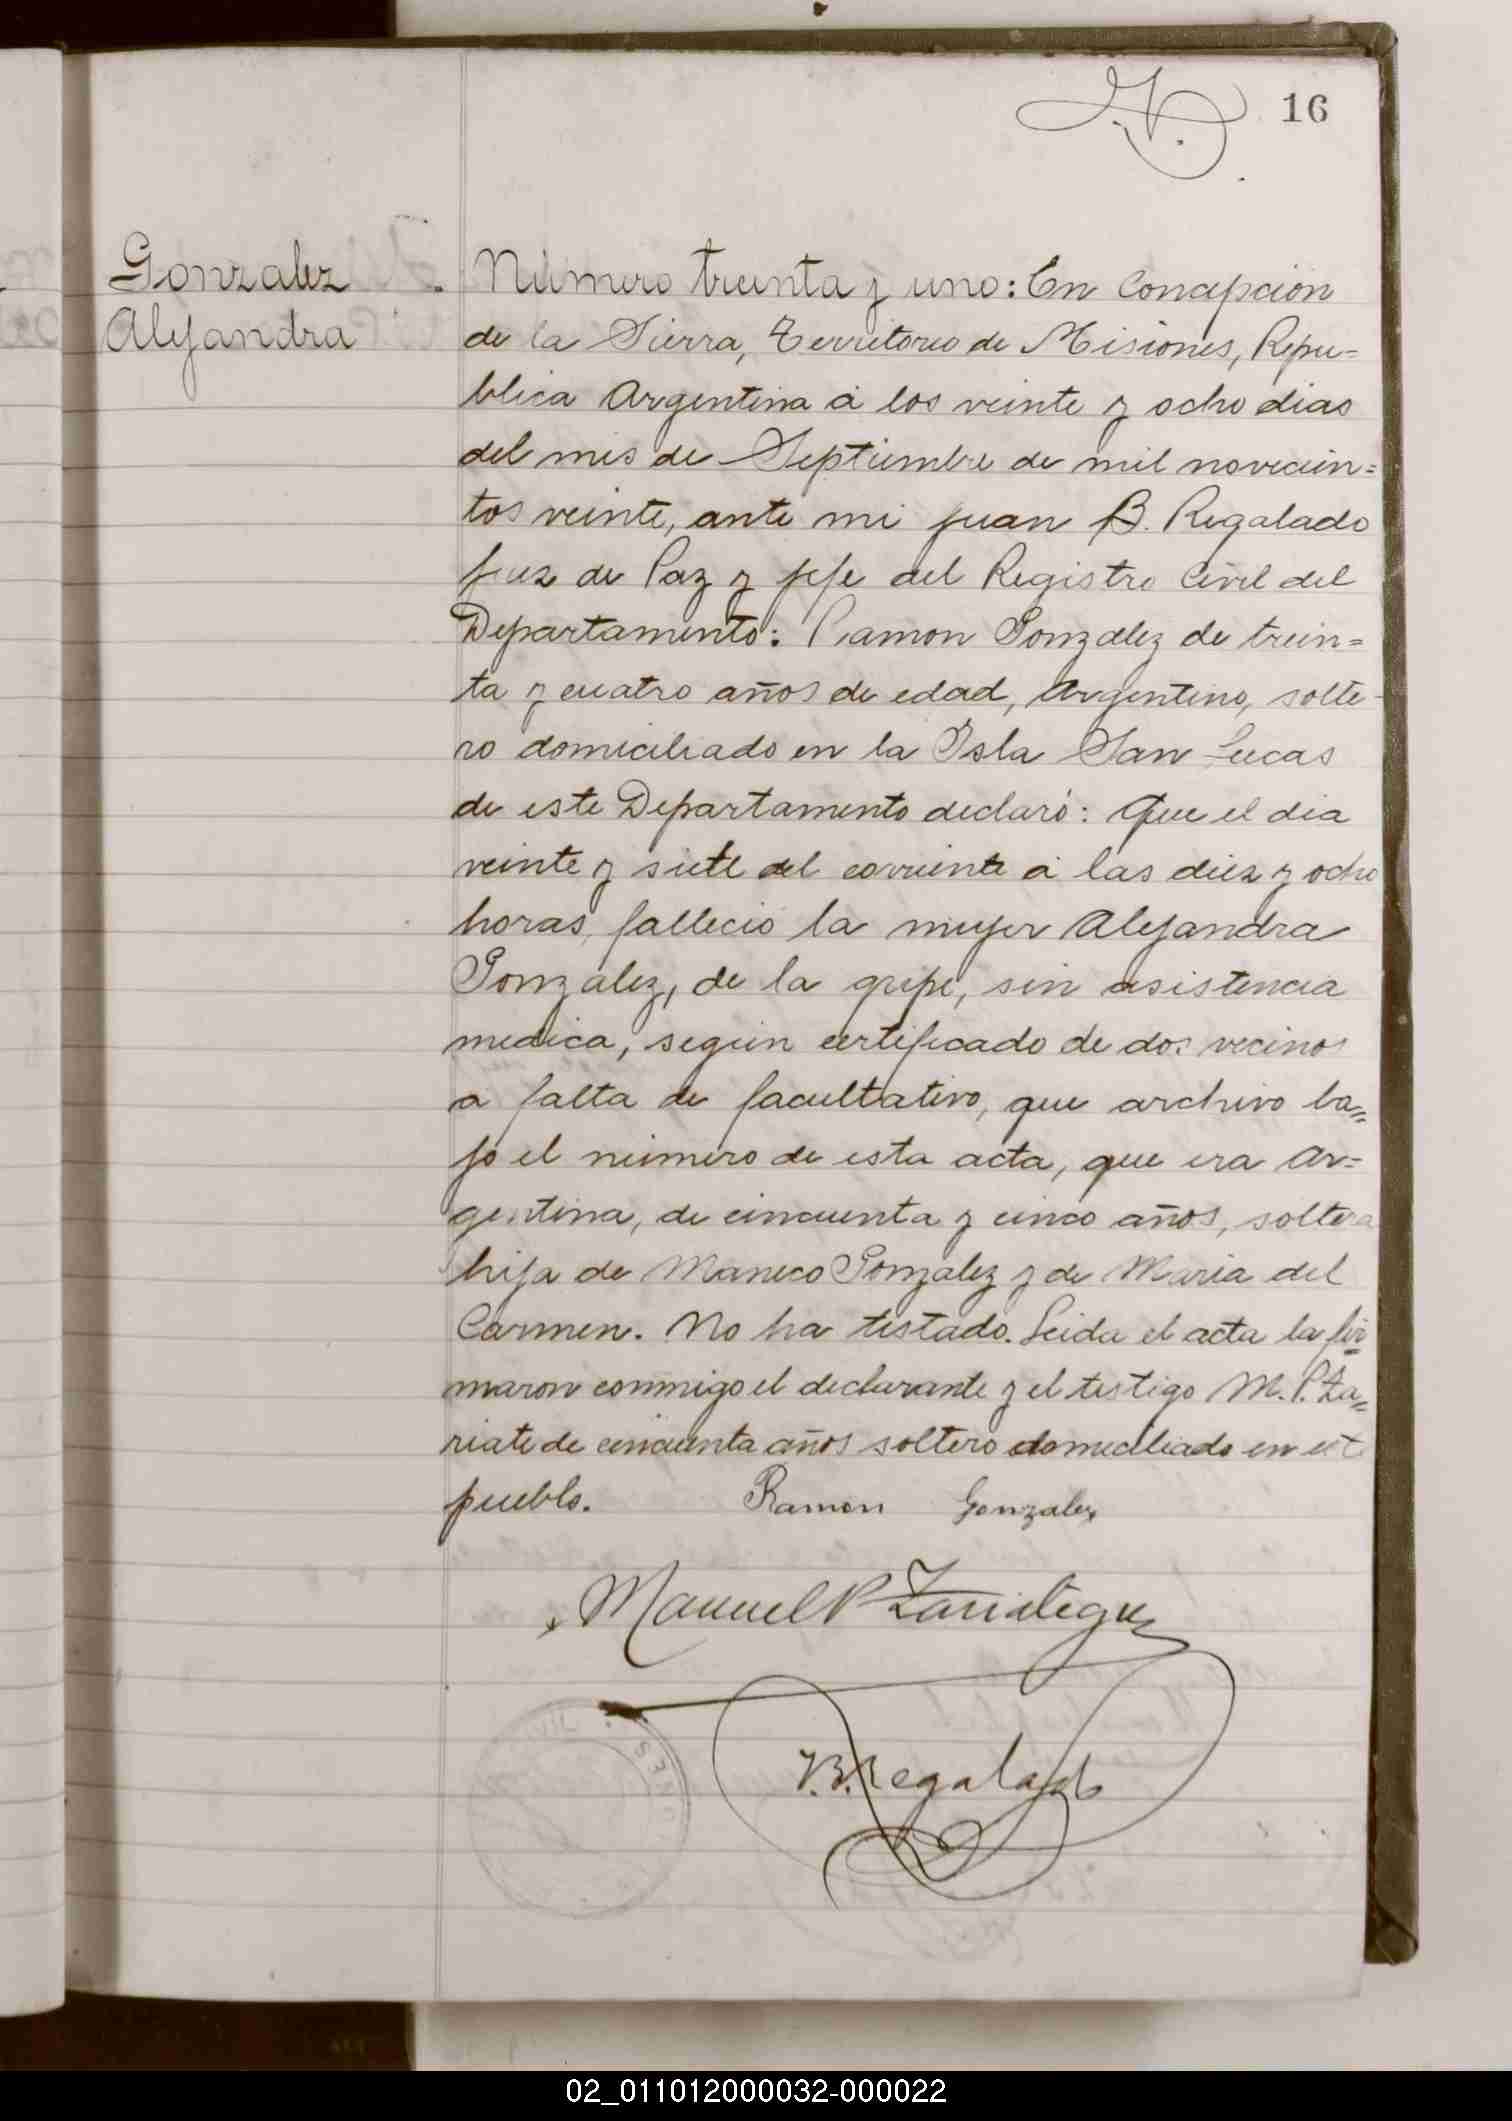 16
Gonzalez
Alejandra
Número treinta y uno: En Concepcion
de la Sierra, Territorio de Misiones, Repu=
blica Argentina á los veinte y ocho dias
del mes de Septiembre de mil novecien=
tos veinte, ante mi Juan B. Regalado
Juez de Paz y Jefe del Registro Civil del
Departamento: Ramon Gonzalez de trein=
ta y cuatro años de edad, Argentino, solte-
ro domiciliado en la Isla San Lucas
de este Departamento declaró: Que el dia
veinte y siete del corriente á las diez y ocho
horas, falleció la mujer Alejandra
Gonzalez, de la gripe, sin asistencia
medica, según certificado de dos vecinos
a falta de facultativo, que archivo ba=
jo el número de esta acta, que era Ar=
gentina, de cincuenta y cinco años, soltera
hija de Maneco Gonzalez y de Maria del
Carmen. No ha testado. Leida el acta la fir
maron conmigo el declarante y el testigo M. P. Za=
riate de cincuenta años soltero domiciliado en este
pueblo. Ramon Gonzalez
Manuel P Zariategui
J.B. Regalado
CIVIL
NES
02_011012000032-000022